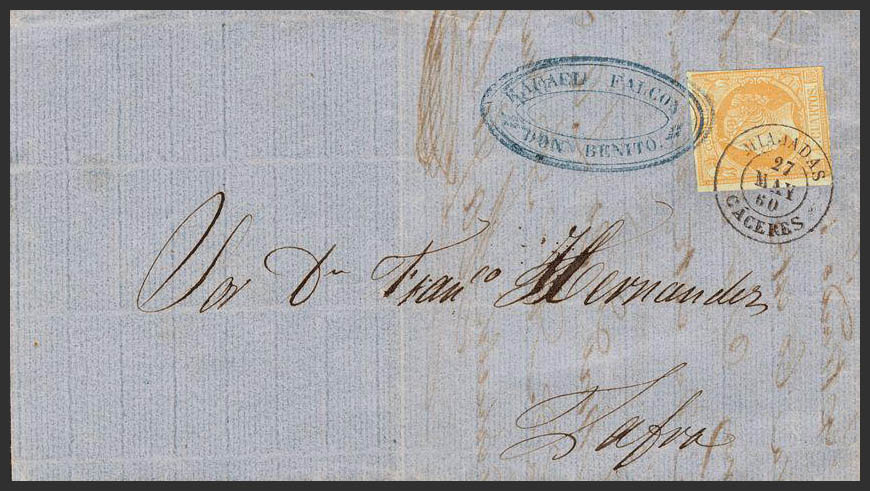 RAFAEL FALCON
DON BENITO.
MIAJADAS
27
MAY
60
CÁCERES
Sor Dn Franco Hernandez
Zafra